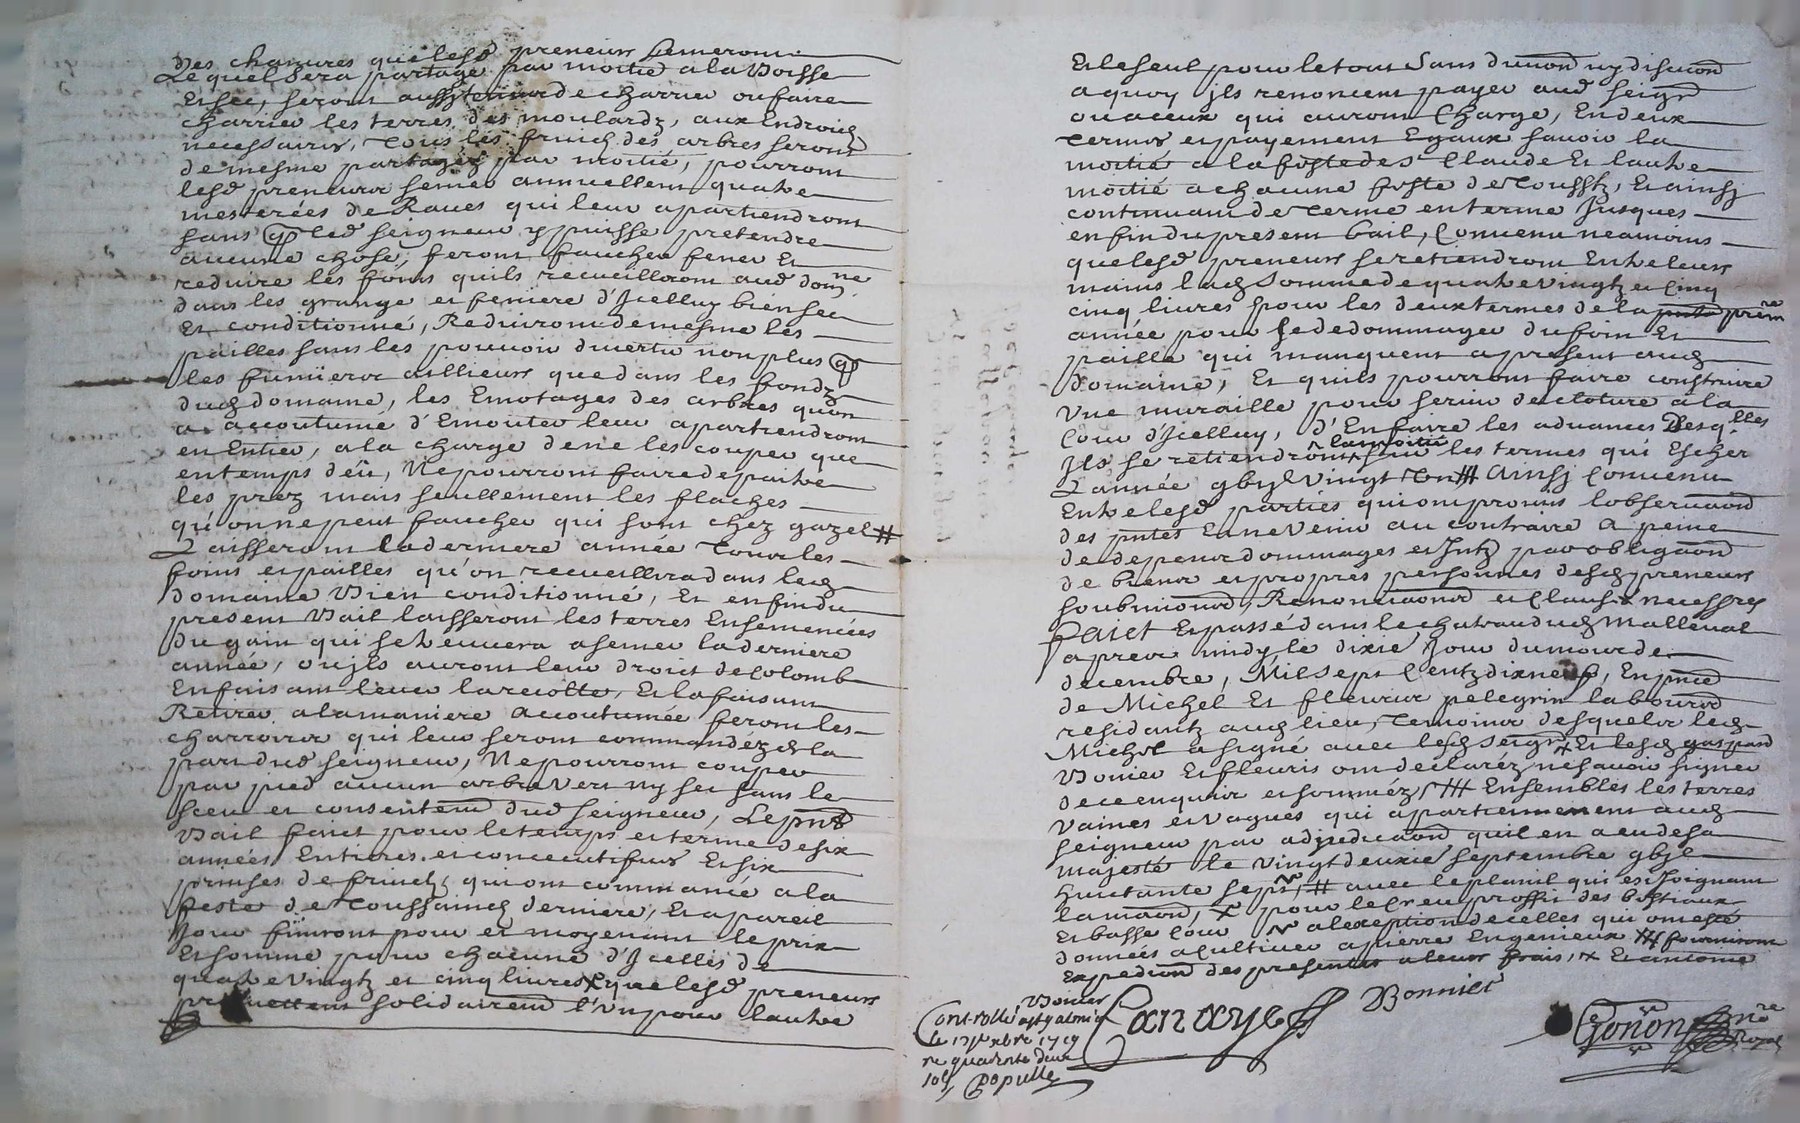 des chanvres que lesd preneurs semeront
Lequel sera partagé par moitié a la Voisse
Et sec, seront aussy tenus de charrier ou faire
charrier les terres des moulardz, aux Endroicts
necessaires, Tous les fruicts des arbres seront
de mesme partagéz par moitié, pourront
lesd preneurs semer annuellemt quatre
mesterées de Raves qui leur apartiendront
sans q led seigneur y puisse pretendre
aucune chose, feront faucher fener Et
reduire les foins quils recueilleront aud domne
dans les grange et feniere d'Icelluy bien sec
Et conditionné, Reduiront de mesme les
pailles sans les pouvoir divertir non plus q
les fumiers aillieurs que dans les fondz
dud domaine, les Emotages des arbres qu'on
a accoutumé d'Emouter leur apartiendront
en Entier, a la charge de ne les couper que
en temps deu, Ne pourront faire depaitre
les prez mais seullement les flaches
qu'on ne peut faucher qui sont chez gazel #
Laisseront la derniere année Tous les
foins et pailles qu'on recueillira dans led
domaine Bien conditionné, Et en fin du
present Bail laisseront les terres Ensemencées
du gain qui se treuvera a semer la derniere
année, ou jls auront leur droict de Colomb
En faisant leuer la recolte, Et la faisant
Retirer a la maniere accoutumée feront les
charrois qui leur seront commandéz de la
part dud seigneur, Ne pourront couper
par pied aucun arbre Vert ny sec sans le
sceu et consentemt dud seigneur, Le pnt
Bail faict pour le temps et terme de six
années Entieres et concecutifves Et six
prinses de fruicts, qui ont commancé a la
feste de Toussaincts derniere, Et a pareil
Jour finiront pour et moyenant le prix
Et somme pour chacune d'Icelles de
quatre vingtz et cinq livres x que lesd preneurs
promettent solidairemt l'Un pour l'autre
Et le seul pour le tout Sans division ny discuon
a quoy jls renoncent payer aud seignr
ou a ceux qui auront Charge, En deux
Termes et payement Egaux savoir la
moitié a la feste de St Claude Et lautre
moitié a chacune feste de Tousstz, Et ainsy
continuant de Terme en terme Jusques
en fin du present bail, Convenu neamoins
que lesd preneurs se retiendront Entre leurs
mains lad Somme de quatre vingtz et Cinq
cinq livres pour les deux termes de la prem re
année pour se dedommager du foin Et
paille qui manquent a present aud
domaine, Et quils pourront faire construire
Une muraille pour servir de cloture a la
Cour d'Icelluy, d'En faire les advances Desqlles
Jls se retiendront la moitié sur les termes qui Escher
L'année gbyc Vingt Un ## Ainsy Convenu
Entre lesd parties qui ont promis l'observaon
des pntes Et ne Venir au contraire a peine
de depens dommages et Jntz par obligaon
de biens et propres personnes desd preneurs
soubmissions, Renonciaons et Clauses necessres
Faict Et passé dans le chateau dud Malleval
apres midy le dixie Jour du mois de
decembre, Mil Sept Centz dix neuf, En pnce
de Michel Et fleurir pelegrin laboureurs
residantz aud lieu, Temoins desquels led
Michel a signé avec lesd Seignr x Et lesd gaspard
Bonier Et fleuris ont declaréz ne savoir signer
de ce enquis et sommés, ### Ensembles les terres
Vaines et Vagues qui apartiennent aud
seigneur par adjudicaon quil en a eu de sa
majesté le vingt deuxie septembre gbyc
huictante sept, # avec le planil qui est Joignant
la maon, x pour le creu proffit des bestiaux
Et basse Cour a l'exeption de celles qui ont esté
donnés a cultiver a pierre Engenieux ### fourniront
Expedion des presentes a leurs frais, x Et antoine
Bonier
Cont-rollé a St
le 17e xbre 1719
re quarente deux
sols
Populle
Bonnier
Gonon
no re
Royal